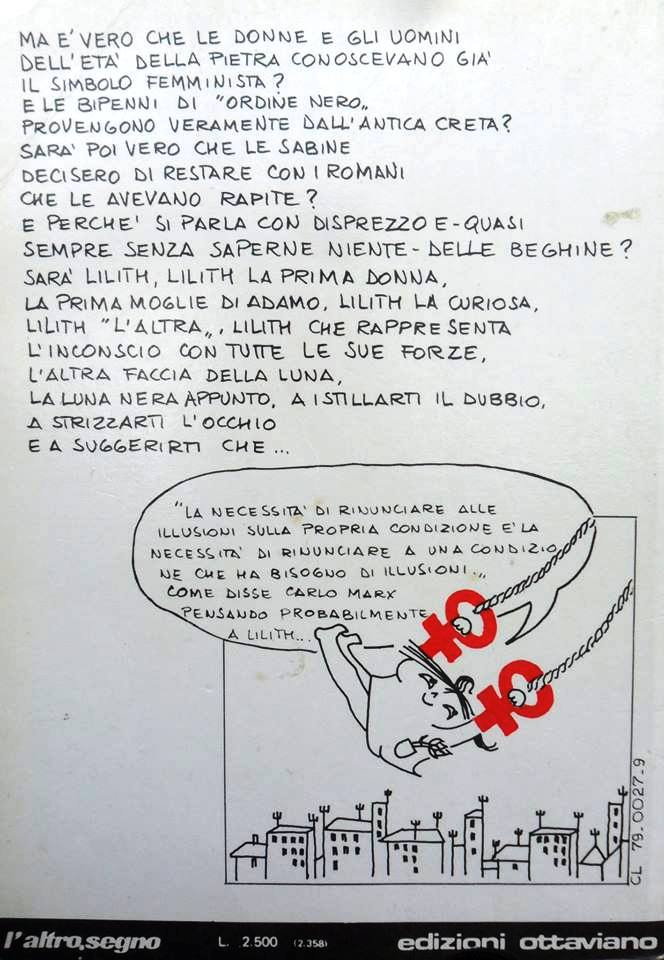 MA E' VERO CHE LE DONNE E GLI UOMINI
DELL'ETA' DELLA PIETRA CONOSCEVANO GIA'
IL SIMBOLO FEMMINISTA?
E LE BIPENNI DI "ORDINE NERO„
PROVENGONO VERAMENTE DALL'ANTICA CRETA?
SARA' POI VERO CHE LE SABINE
DECISERO DI RESTARE CON I ROMANI
CHE LE AVEVANO RAPITE?
E PERCHE' SI PARLA CON DISPREZZO E-QUASI
SEMPRE SENZA SAPERNE NIENTE-DELLE BEGHINE?
SARA' LILITH, LILITH LA PRIMA DONNA,
LA PRIMA MOGLIE DI ADAMO, LILITH LA CURIOSA,
LILITH "L'ALTRA„, LILITH CHE RAPPRESENTA
L'INCONSCIO CON TUTTE LE SUE FORZE,
L'ALTRA FACCIA DELLA LUNA,
LA LUNA NERA APPUNTO, A ISTILLARTI IL DUBBIO,
A STRIZZARTI L'OCCHIO
E A SUGGERIRTI CHE...
"LA NECESSITA' DI RINUNCIARE ALLE
ILLUSIONI SULLA PROPRIA CONDIZIONE E' LA
NECESSITA' DI RINUNCIARE A UNA CONDIZIO
NE CHE HA BISOGNO DI ILLUSIONI„
COME DISSE CARLO MARX
PENSANDO PROBABILMENTE
A LILITH...
CL 79.0027-9
l'altro,segno L. 2.500 (2.358) edizioni ottaviano